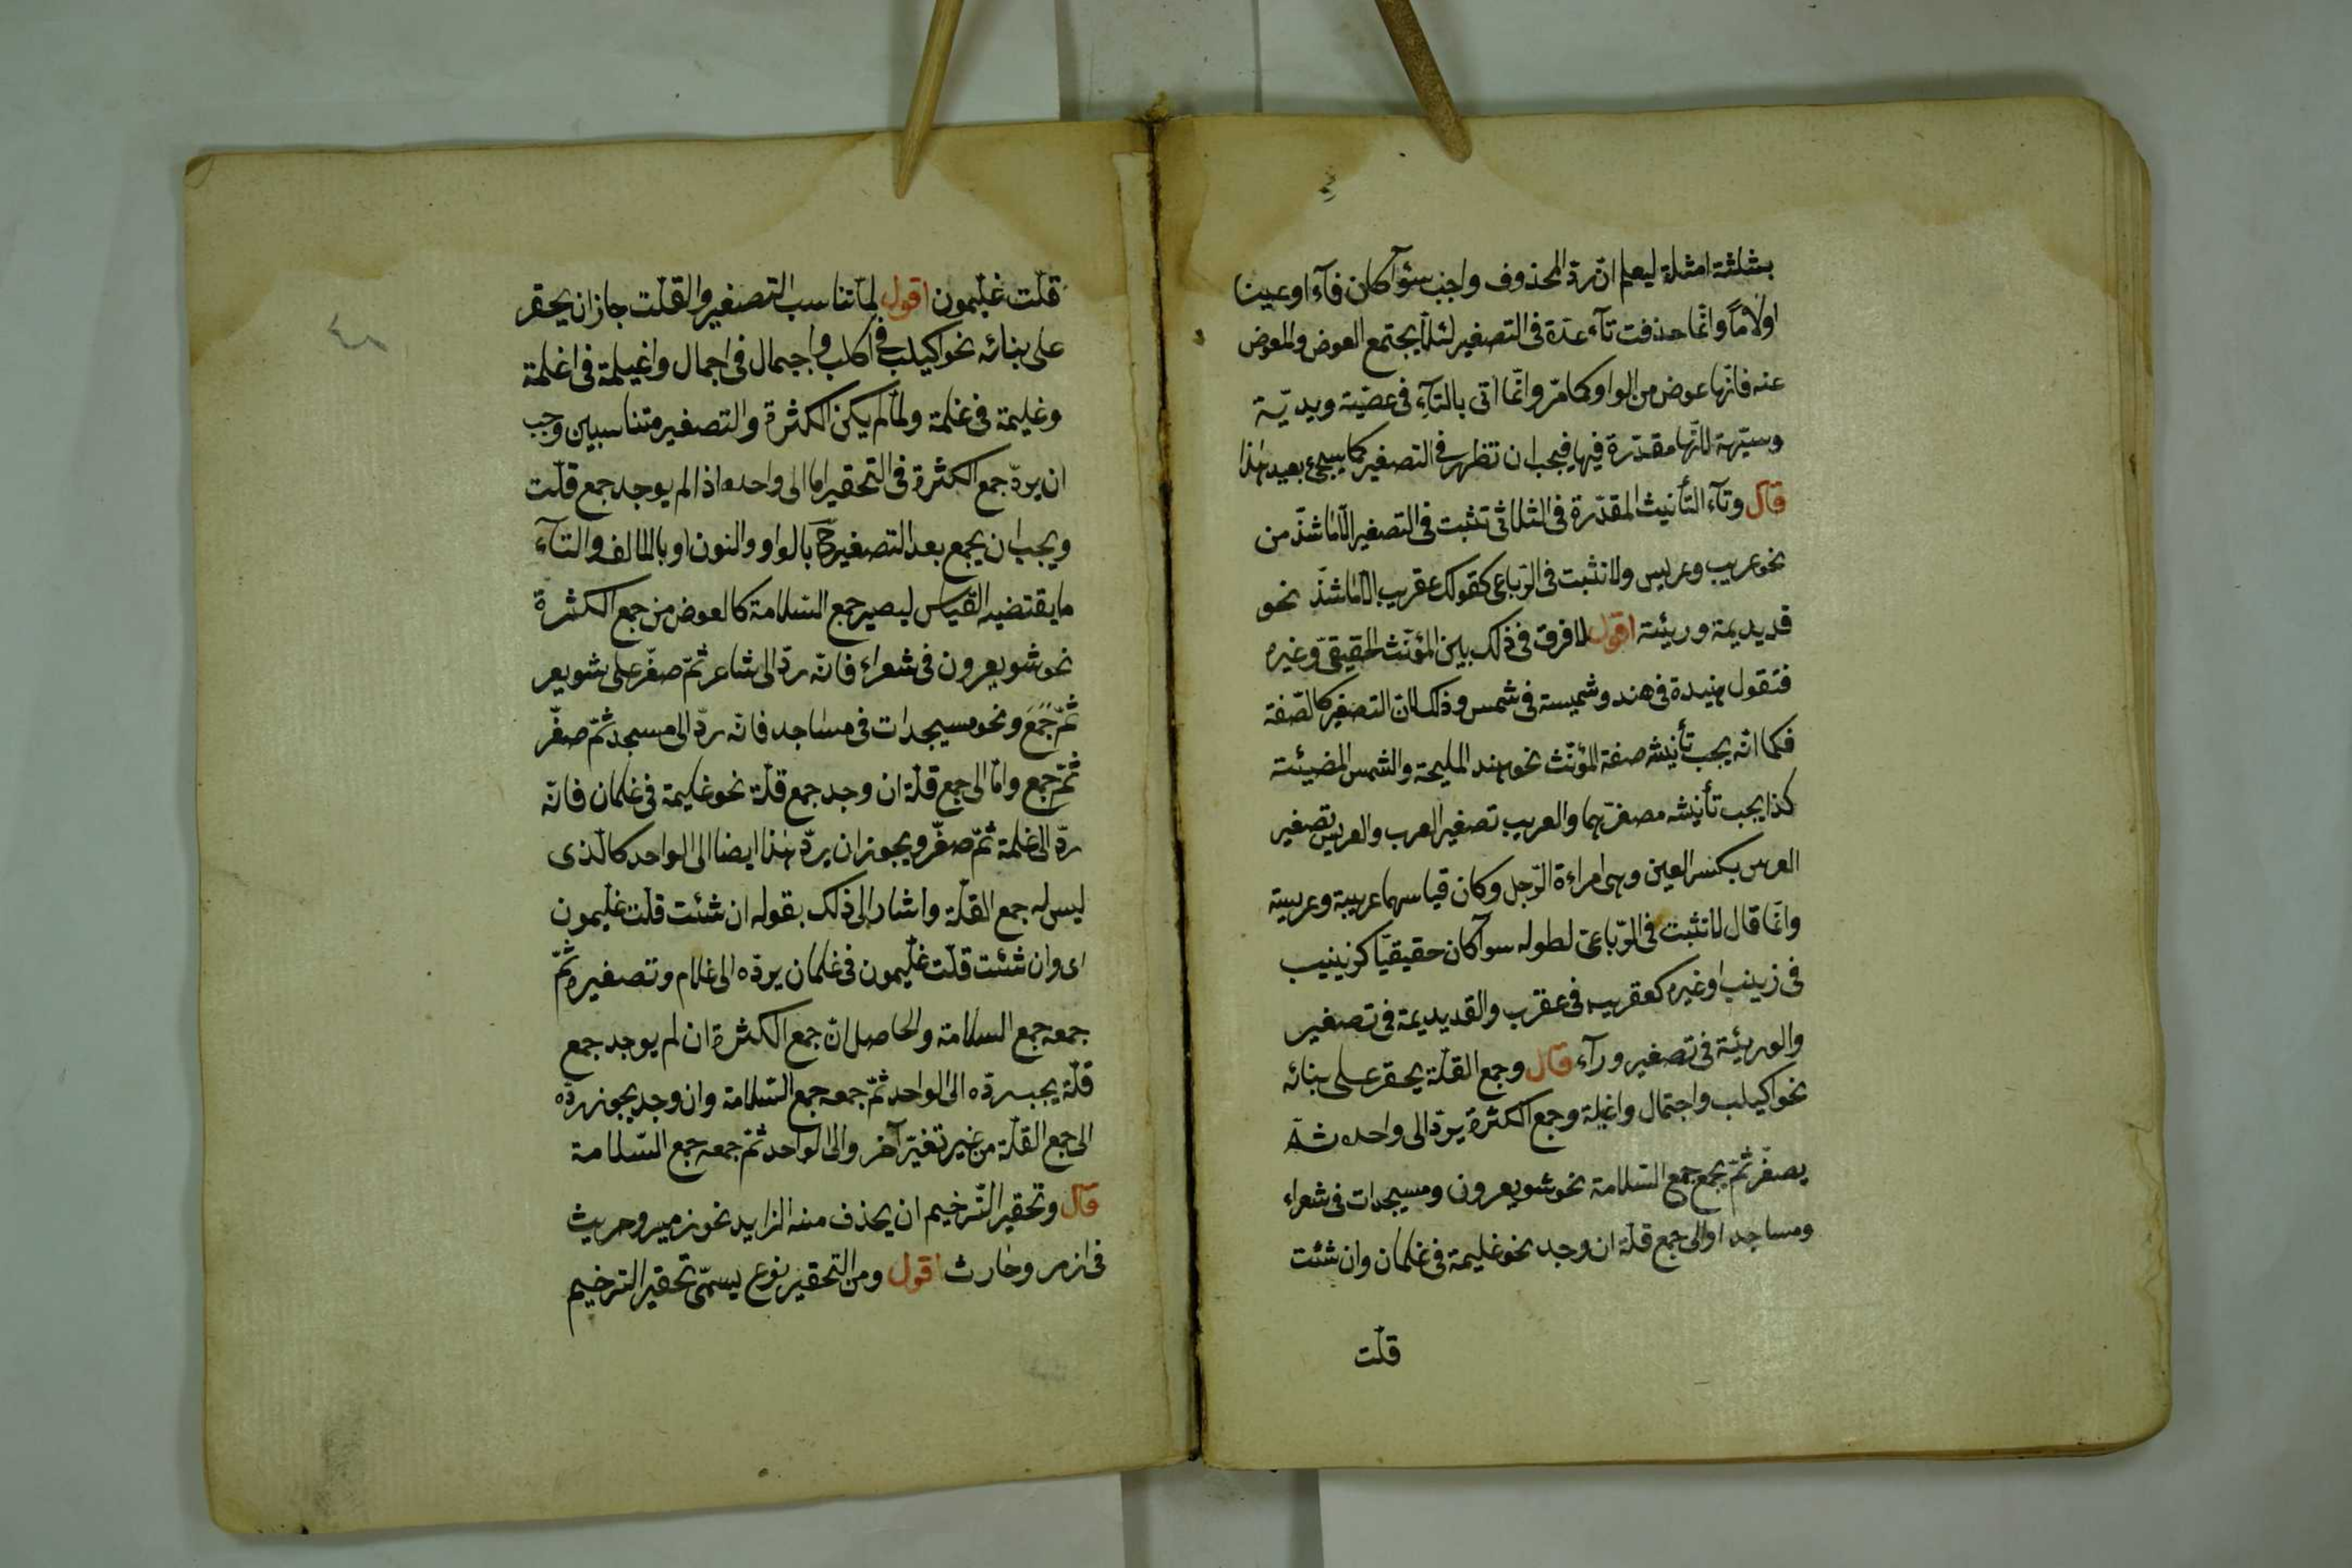 بثلثة امثلة ليعلم انّ ردّ المحذوف واجب سوآ كان فآء او عينا
اولاماً وانّما حذفت تآء عدة فى التصغير لئلّا يجتمع العوض والمعوض
عنه فانّها عوض من الواو كما مرّ وانّما اتى بالتآء فى عضيّة ويديّة
وستيهة لانّها مقدّرة فيها فيجب ان تظهر فى التصغير كما سيجىء بعيد هذا
قال وتآء التأنيث المقدّرة فى الثلاثى تثبت فى التصغير الّا ما شذّ من
نحو عريب وعريس ولا تثبت فى الرّباعى كقولك عقريب الّا ما شذّ نحو
قديديمة وريئة اقول لا فرق فى ذلك بين المؤنّث الحقيقىّ وغيره
فتقول هنيدة فى هند وشميسة فى شمس وذلك لان التصغير كالصّفة
فكما انّه يجب تأنيث صفة المؤنّث نحو هند المليحة والشمس المضيئة
كذا يجب تأنيث مصغّرهما والعريب تصغير العرب والعريس تصغير
العرس بكسر العين وهى امراءة الرّجل وكان قياسهما عريبة وعريسة
وانّما قال لا تثبت فى الرّباعى لطوله سوآ كان حقيقيّا كزينيب
فى زينب او غيره كعقريب فى عقرب والقديديمة فى تصغير
والوريئة فى تصغير ورآء قال وجمع القلّة يحقر على بنائه
نحو اكيلب واجيمال واغيلمة وجمع الكثرة يردّ الى واحده ثمّ
يصغّر ثمّ يجمع جمع السّلامة نحو شويعرون ومسيجدات فى شعراء
ومساجد او الى جمع قلّة ان وجد نحو غليمة فى غلمان وان شئت
قلت
قلت غليّمون اقول لمّا تناسب التصغير والقلّت جاز ان يحقر
على بنائه نحو اكيلب فى اكلب واجيمال فى اجمال واغيلمة فى اغلمة
وغليمة فى غلمة ولمّا لم يكن الكثرة والتصغير متناسبين وجب
ان يردّ جمع الكثرة فى التحقير اما الى واحده اذا لم يوجد جمع قلّت
ويجب ان يجمع بعد التصغير ح بالواو والنون او بالالف والتآء
ما يقتضيه القياس ليصير جمع السّلامة كالعوض من جمع الكثرة
نحو شويعرون فى شعراء فانّه ردّ الى شاعر ثمّ صغّر على شويعر
ثمّ جمع ونحو مسيجدات فى مساجد فانّه ردّ الى مسجد ثمّ صغّر
ثمّ جمع وامّا الى جمع قلّة ان وجد جمع قلّة نحو غليمة فى غلمان فانّه
ردّ الى غلمة ثمّ صغّر ويجوز ان يردّ هذا ايضا الى الواحد كالّذى
ليس له جمع القلّة واشار الى ذلك بقوله ان شئت قلت غليّمون
اى وان شئت قلت غليّمون فى غلمان بردّه الى غلام وتصغيره ثمّ
جمعه جمع السلامة والحاصل انّ جمع الكثرة ان لم يوجد جمع
قلّة يجب ردّه الى الواحد ثمّ جمعه جمع السّلامة وان وجد يجوز ردّه
الى جمع القلّة من غير تغيّر آخر والى الواحد ثمّ جمعه جمع السّلامة
قال وتحقير التّرخيم ان يحذف منه الزايد نحو زمير وحريث
فى ازمر وحارث اقول ومن التحقير نوع يسمّى تحقير الترخيم